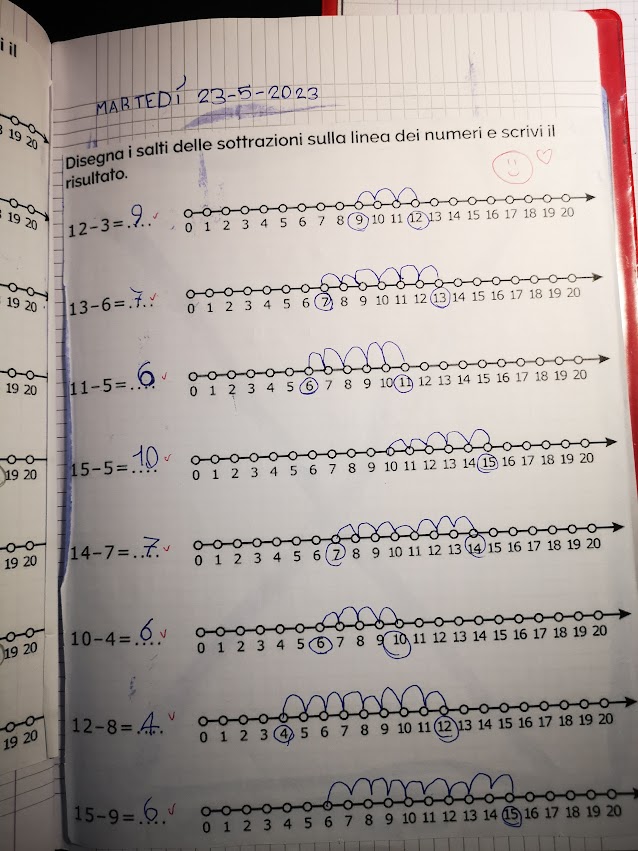 i il
MARTEDÍ 23-5-2023
Disegna i salti delle sottrazioni sulla linea dei numeri e scrivi il
risultato.
12-3=9
0 1 2 3 4 5 6 7 8 9 10 11 12 13 14 15 16 17 18 19 20
13-6=7
0 1 2 3 4 5 6 7 8 9 10 11 12 13 14 15 16 17 18 19 20
11-5=6
0 1 2 3 4 5 6 7 8 9 10 11 12 13 14 15 16 17 18 19 20
15-5=10
0 1 2 3 4 5 6 7 8 9 10 11 12 13 14 15 16 17 18 19 20
14-7=7
0 1 2 3 4 5 6 7 8 9 10 11 12 13 14 15 16 17 18 19 20
10-4=6
0 1 2 3 4 5 6 7 8 9 10 11 12 13 14 15 16 17 18 19 20
12-8=4
0 1 2 3 4 5 6 7 8 9 10 11 12 13 14 15 16 17 18 19 20
15-9=6
0 1 2 3 4 5 6 7 8 9 10 11 12 13 14 15 16 17 18 19 20
19 20
19 20
19 20
19 20
19 20
19 20
19 20
19 20